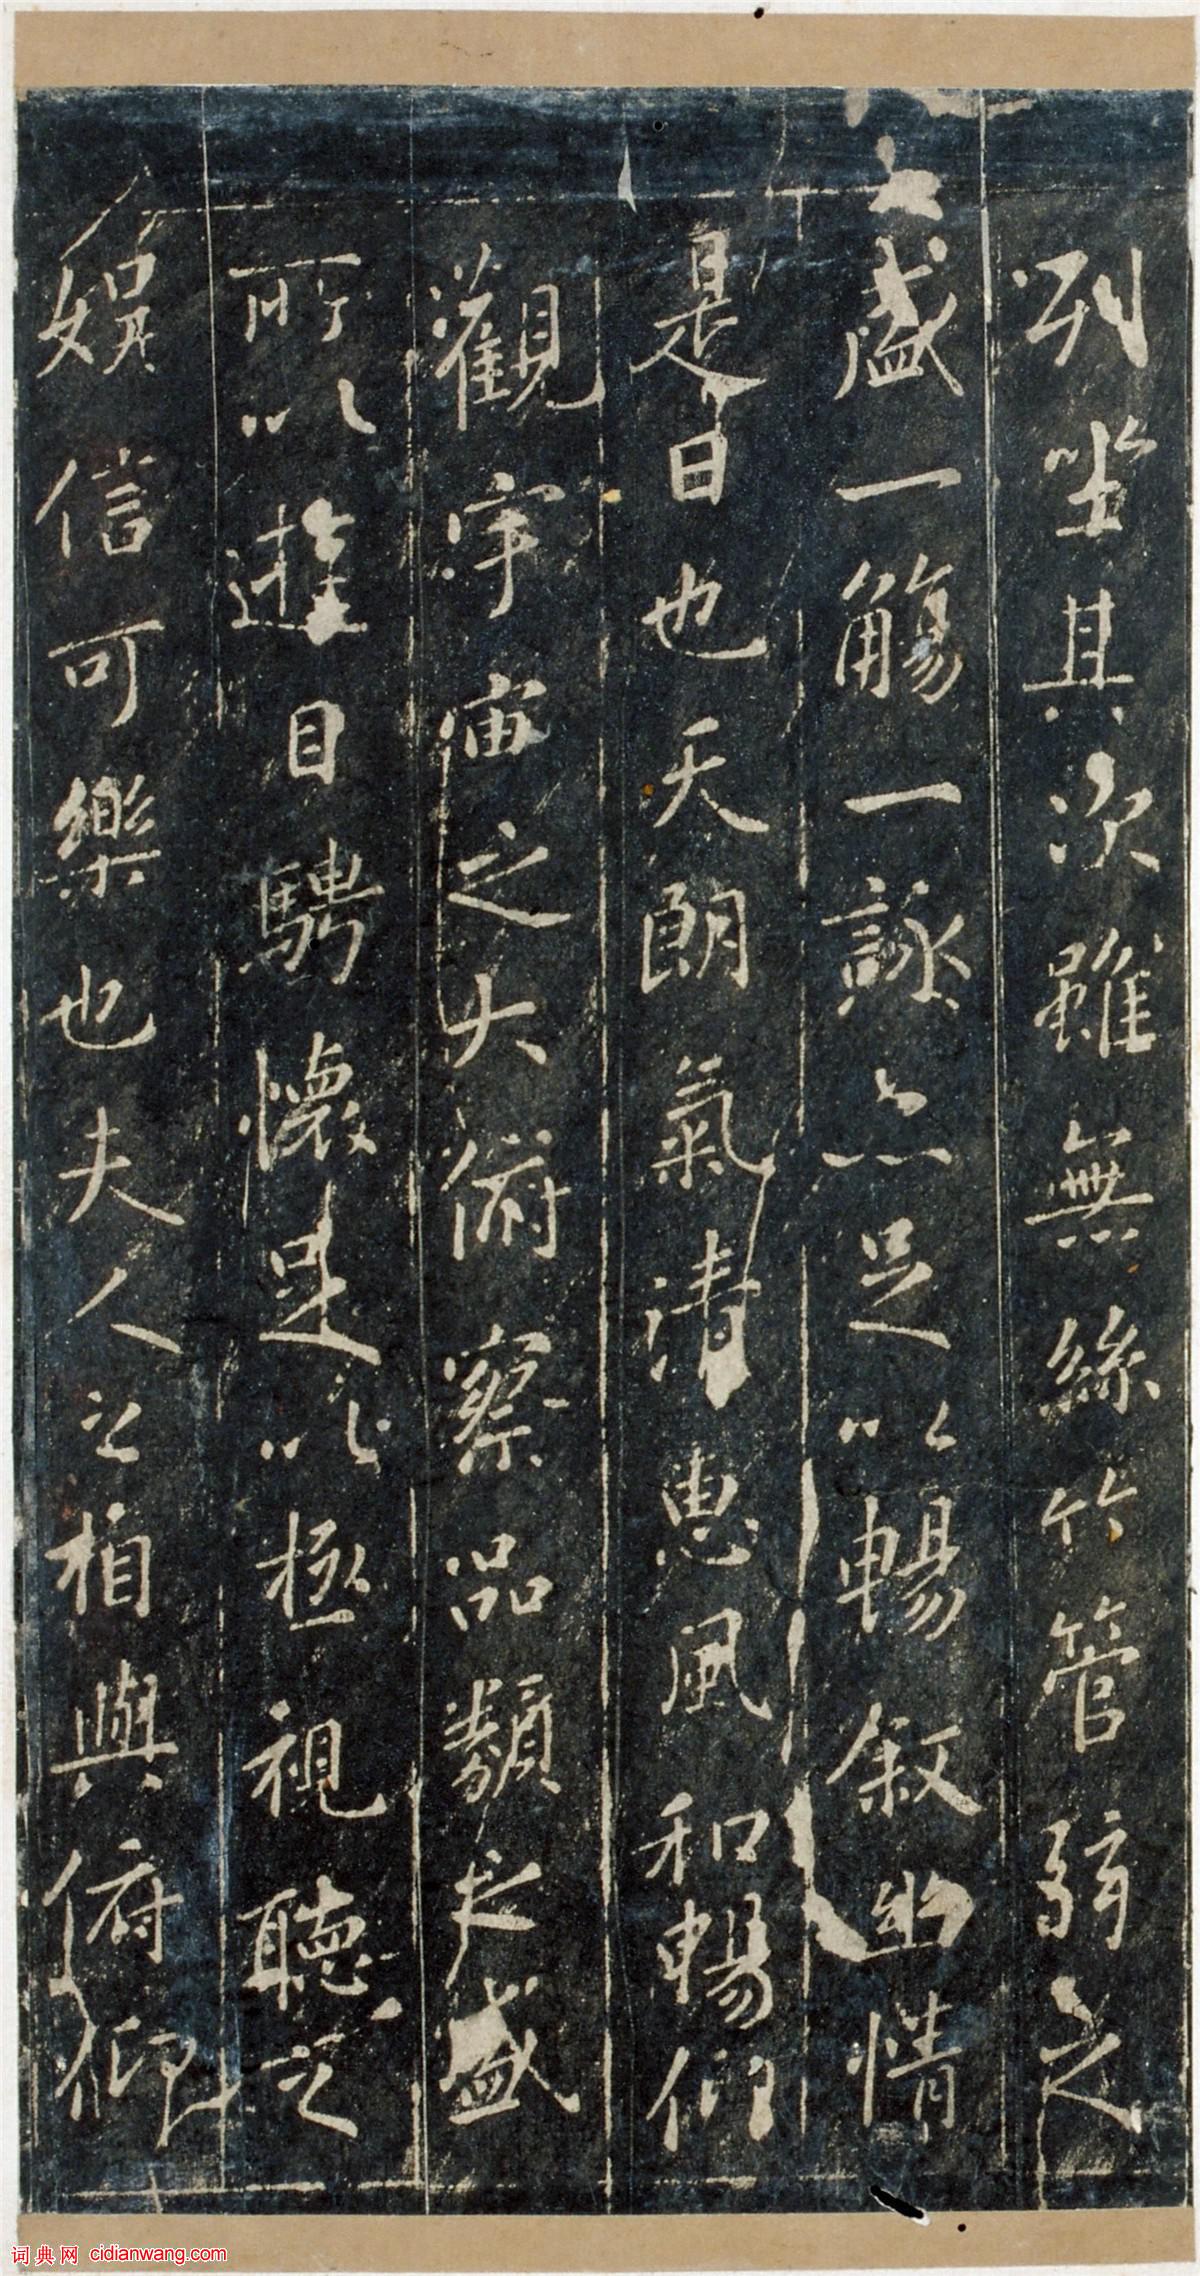 列坐其次雖無絲竹管弦之
盛一觴一詠亦足以暢敘幽情
是日也天朗氣清惠風和暢仰
觀宇宙之大俯察品類之盛
所以遊目騁懷足以極視聽之
娛信可樂也夫人之相與俯仰
词典网 cidianwang.com